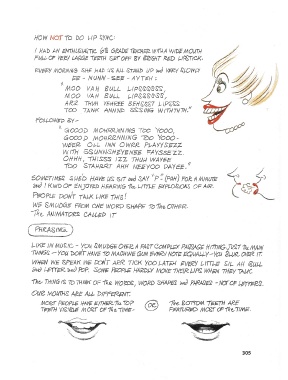 HOW NOT TO DO LIP SYNC:
I HAD AN ENTHUSIASTIC 6th GRADE TEACHER WITH A WIDE MOUTH
FULL OF VERY LARGE TEETH SET OFF BY BRIGHT RED LIPSTICK.
EVERY MORNING SHE HAD US ALL STAND UP and VERY SLOWLY
"MOD VAN BULL LIPSSSSSS,
MOD VAN BULL LIPSSSSSS,
TOO TANK ANNND
FOLLOWED BY -
"GOOOD MOHRRNNING TOO YOOO,
GOOOD MOHRRNNING TOO YOOO -
WEER OLL INN OWRR PLAYSSEZZ
WITH SSUNNSHEYENEE FAYSSEZZ.
OHHH, THISSS IZZ THUH WAYEE
TOO STAHART AHH NEEYOO DAYEE."
SOMETIMES SHE'D HAVE US SIT and SAY "P" (PAH) FOR A MINUTE
and I KIND OF ENJOYED HEARING THE LITTLE EXPLOSIONS OF AIR.
PEOPLE DON'T TALK LIKE THIS!
WE SMUDGE FROM ONE WORD SHAPE TO THE OTHER.
THE ANIMATORS CALLED IT
PHRASING.
LIKE IN MUSIC - YOU SMUDGE OVER A FAST COMPLEX PASSAGE HITTING JUST THE MAIN
THINGS - YOU DON'T HAVE TO MACHINE GUN EVERY NOTE EQUALLY - YOU SLUR OVER IT.
WHEN WE SPEAK WE DON'T ARR TICK YOO LATEH EVERY LITTLE SIL AH BULL
and LETTER and POP. SOME PEOPLE HARDLY MOVE THEIR LIPS WHEN THEY TALK.
THE THING IS TO THINK OF THE WORDS, WORD SHAPES and PHRASES - NOT OF LETTERS.
OUR MOUTHS ARE ALL DIFFERENT.
MOST PEOPLE HAVE EITHER THE TOP
TEETH VISIBLE MOST OF THE TIME -
OR
THE BOTTOM TEETH ARE
FEATURED MOST OF THE TIME.
305